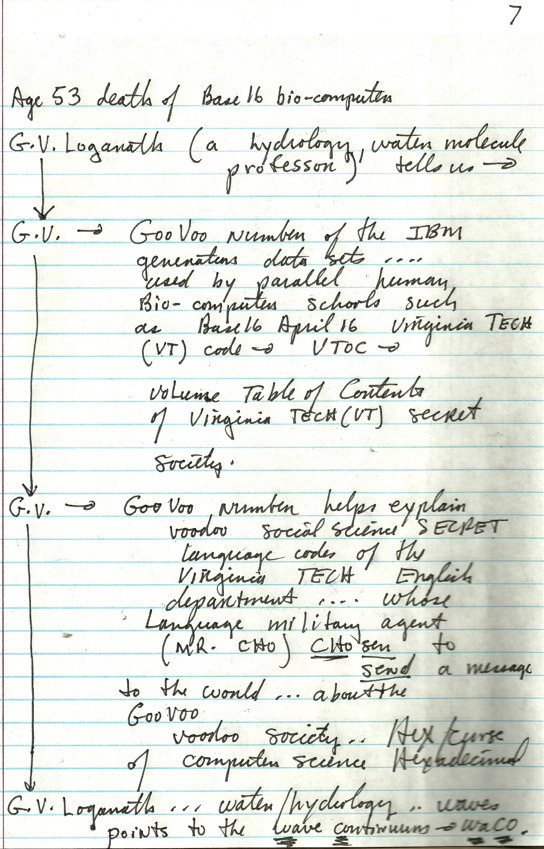 7
Age 53 death of Base 16 bio-computer
G.V. Loganath (a hydrology, water molecule
professor), tells us →
G.V. → GooVoo number of the IBM
generations data sets ....
used by parallel human
Bio-computer schools such
as Base16 April 16 Virginia TECH
(VT) code → VTOC →
volume Table of Contents
of Virginia TECH (VT) secret
society.
G.V. → GooVoo number helps explain
voodoo social science SECRET
language codes of the
Virginia TECH English
department .... whose
Language military agent
(MR. CHO) CHOsen to
send a message
to the world ... about the
GooVoo
voodoo society .. Hex/curse
of computer science Hexadecimal
G.V. Loganath ... water/hydrology .. waves
points to the wave continuums → WaCO.